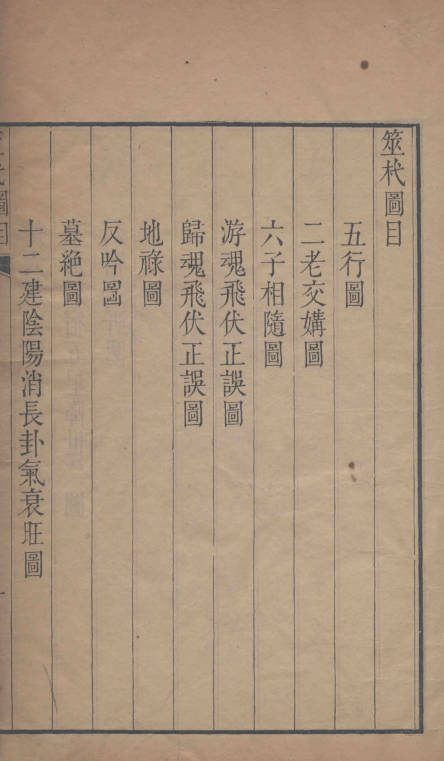 筮杙圖目
五行圖
二老交媾圖
六子相隨圖
游魂飛伏正誤圖
歸魂飛伏正誤圖
地祿圖
反吟圖
墓絶圖
十二建陰陽消長卦氣衰旺圖